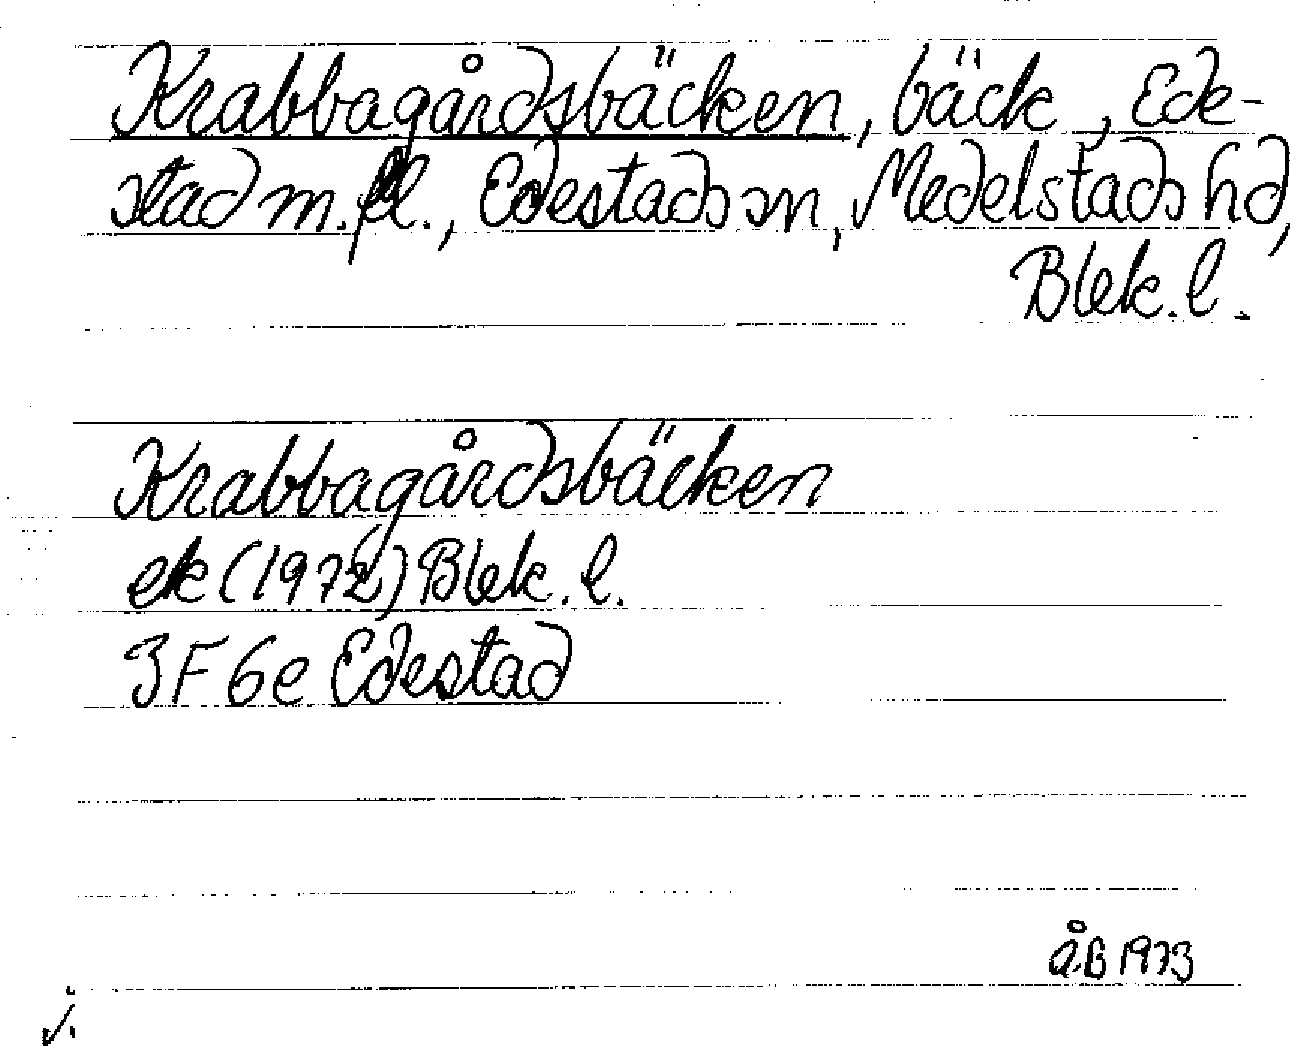 Krabbagårdsbäcken, bäck, Ede-
stad m.fl., Edestads sn, Medelstads hd,
Blek.l.
Krabbagårdsbäcken
ek (1972) Blek.l.
3F6e Edestad
ÅB 1973